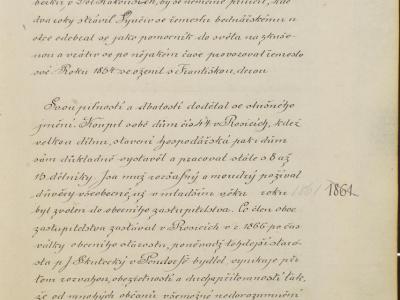 dva roky strávil. Vyučiv se řemeslu bednářskému u
otce odebral se jako pomocník do světa na zkuše-
nou a vrátiv se po nějakém čase provozoval řemeslo
své. Roku 1854 se oženil s Františkou, dcerou
Svou pilností a dbalostí dodělal se slušného
jmění. Koupil sobě dům čís. 44 v Rosicích, k dež
velkou dílnu, stavení hospodářská pak i dům
sám důkladně vystavěl a pracoval stále s 8 až
15 dělníky. Jsa muž rozšafný a moudrý požíval
důvěry všeobecné, už v mladším věku roku 1861 1861.
byl zvolen do obecního zastupitelstva. Co člen obec.
zastupitelstva zastával v Rosicích v r. 1866 po čas
války obecního starostu, poněvadž tehdejší staro-
sta p. J. Skutecký v Tondorfě bydlel, vynikaje při
tom rozvahou, obezřetností a duchapřítomností tak,
že od mnohých občanů všemožné nedorozumění